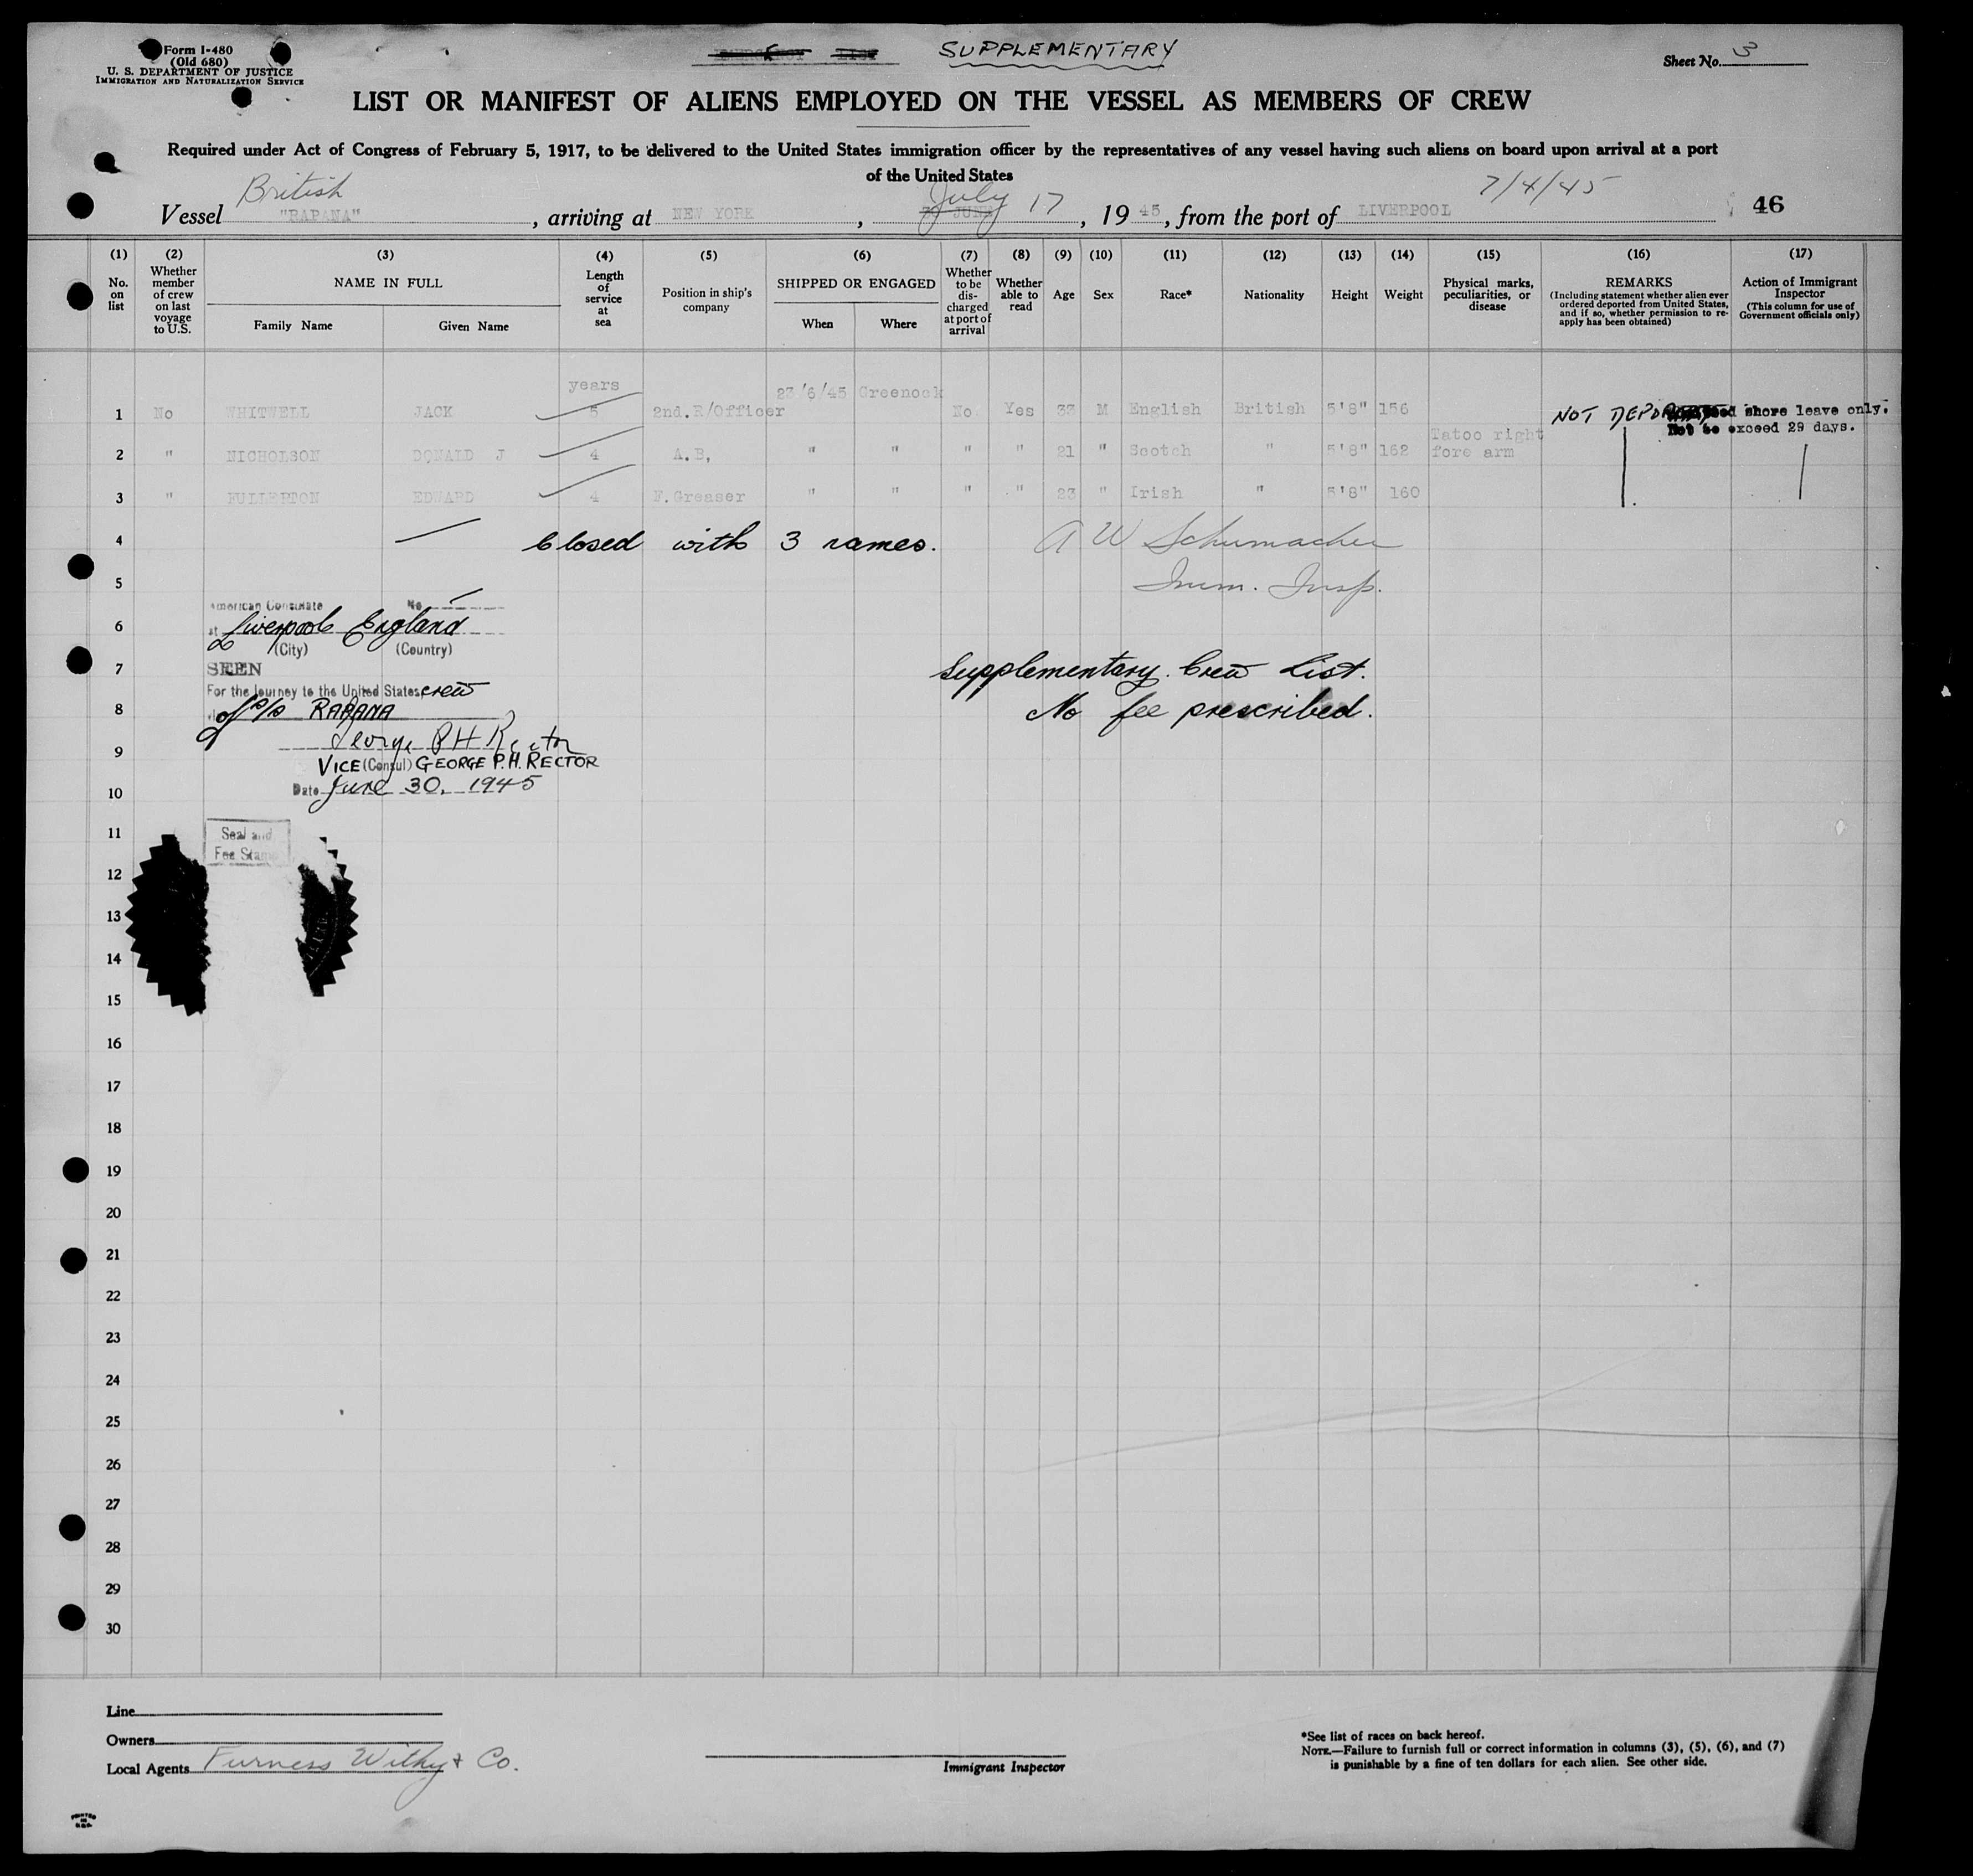 Form I-480
(Old 680)
U. S. DEPARTMENT OF JUSTICE
IMMIGRATION AND NATURALIZATION SERVICE
SUPPLEMENTARY
Sheet No. 3
LIST OR MANIFEST OF ALIENS EMPLOYED ON THE VESSEL AS MEMBERS OF CREW
Required under Act of Congress of February 5, 1917, to be delivered to the United States immigration officer by the representatives of any vessel having such aliens on board upon arrival at a port
of the United States
British July 7/4/45
Vessel "RAPANA", arriving at NEW YORK, JUNE 17, 1945, from the port of LIVERPOOL 46
(1) (2) (3) (4) (5) (6) (7) (8) (9) (10) (11) (12) (13) (14) (15) (16) (17)
No. on list
Whether member of crew on last voyage to U.S.
NAME IN FULL
Family Name Given Name
Length of service at sea
Position in ship's company
SHIPPED OR ENGAGED
When Where
Whether to be discharged at port of arrival
Whether able to read
Age
Sex
Race*
Nationality
Height
Weight
Physical marks, peculiarities, or disease
REMARKS
(Including statement whether alien ever ordered deported from United States, and if so, whether permission to re-apply has been obtained)
Action of Immigrant Inspector
(This column for use of Government officials only)
years 23/6/45 Greenock
1 No WHITWELL JACK 5 2nd.R/Officer No Yes 33 M English British 5'8" 156 NOT DEPORTED shore leave only.
Not to exceed 29 days.
2 " NICHOLSON DONALD J 4 A.B, " " " " 21 " Scotch " 5'8" 162 Tatoo right fore arm
3 " FULLERTON EDWARD 4 F.Greaser " " " " 23 " Irish " 5'8" 160
4 Closed with 3 names. A W Schumacher
5 Imm. Insp.
American Consulate No.
6 at Liverpool England
(City) (Country)
7 SEEN Supplementary Crew List.
For the journey to the United States crew
8 of s/s RAPANA No fee prescribed.
George P H Rector
9 VICE (Consul) GEORGE P.H. RECTOR
10 Date June 30, 1945
11 Seal and
Fee Stamp
12
13
14
15
16
17
18
19
20
21
22
23
24
25
26
27
28
29
30
Line
Owners
Local Agents Furness Withy & Co.
Immigrant Inspector
*See list of races on back hereof.
NOTE.—Failure to furnish full or correct information in columns (3), (5), (6), and (7)
is punishable by a fine of ten dollars for each alien. See other side.
PRINTED
IN
U.S.A.